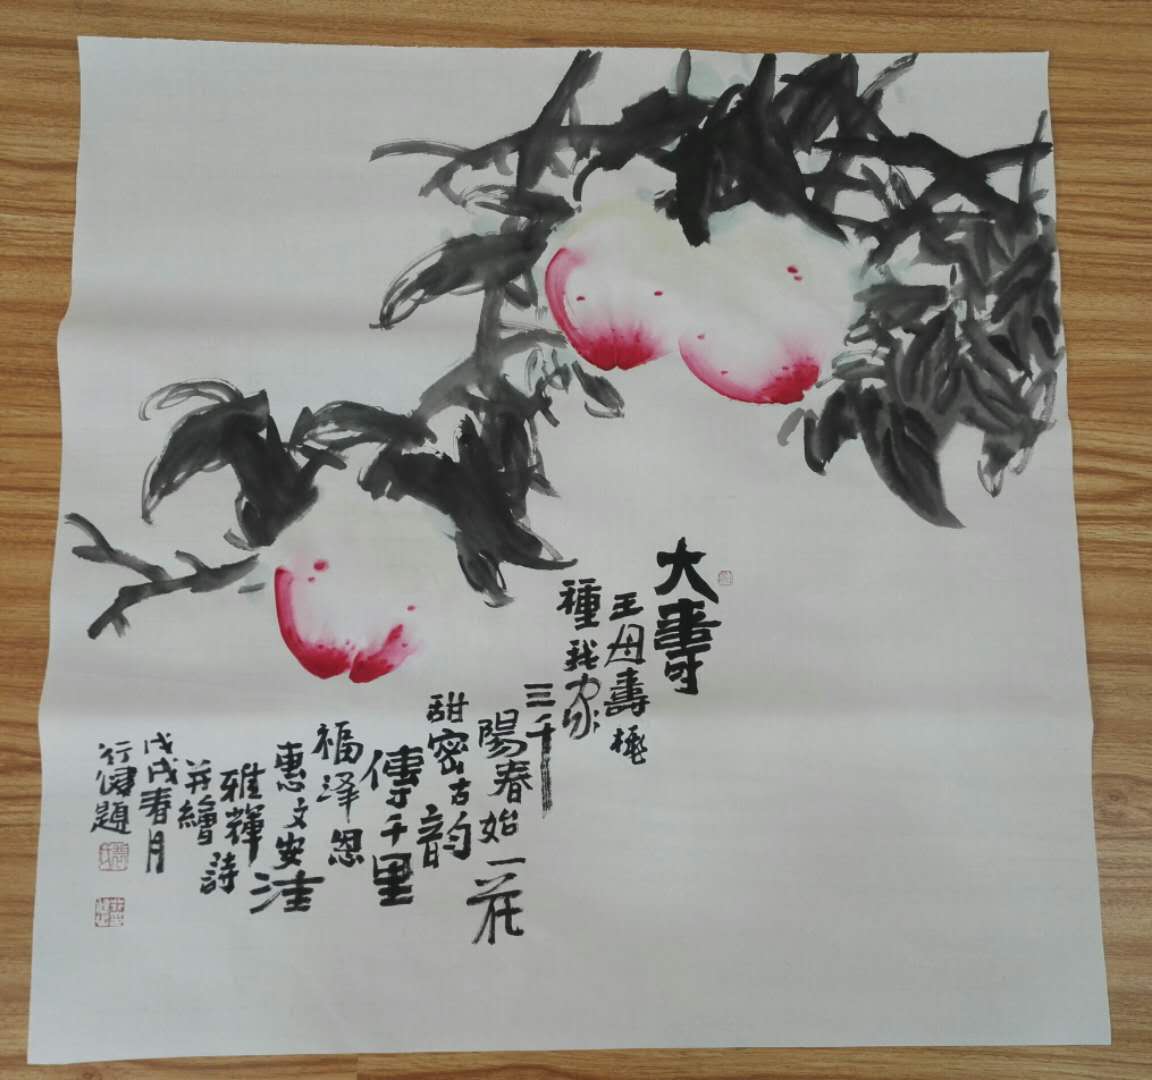 大壽
王母壽桃
種我家
三千
陽春始一花
甜密古韵
傳千里
福泽恩
惠文安洼
雅輝詩
并繪
戊戌春月
行健題